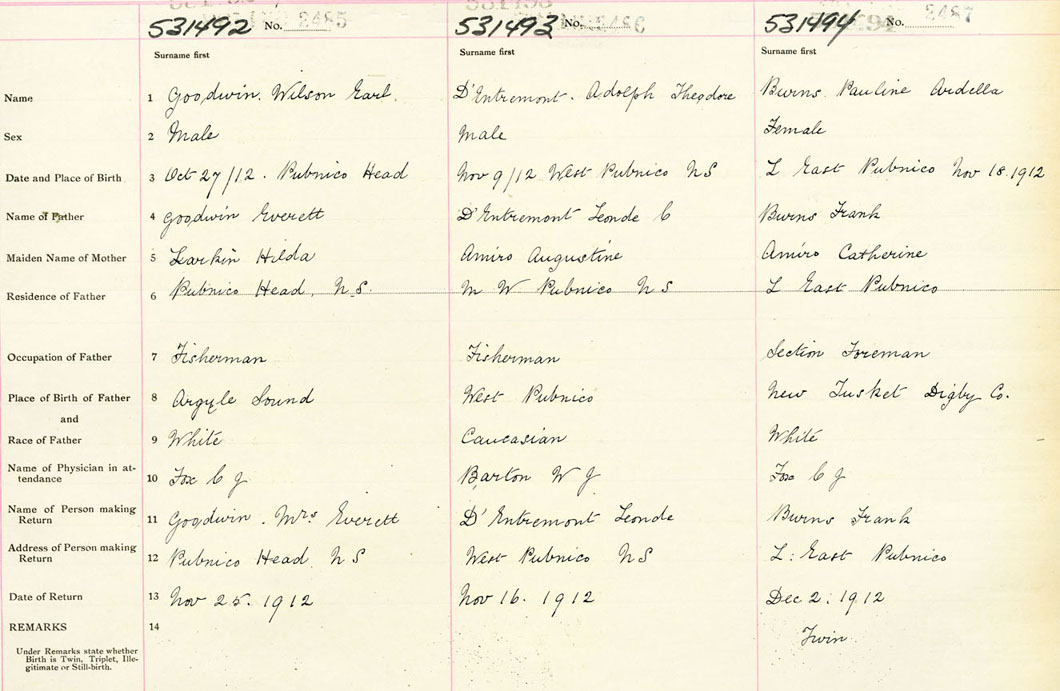 531492 No. 2485
531493 No. 2486
531494 No. 2487
Surname first Surname first Surname first
Name 1 Goodwin. Wilson Earl. D'Entremont. Adolph Theodore Burns Pauline Ardella
Sex 2 Male Male Female
Date and Place of Birth 3 Oct 27/12. Pubnico Head Nov 9/12 West Pubnico NS L East Pubnico Nov 18.1912
Name of Father 4 Goodwin Everett D'Entremont Leonde C Burns Frank
Maiden Name of Mother 5 Larkin Hilda Amiro Augustine Amiro Catherine
Residence of Father 6 Pubnico Head. N.S. M W. Pubnico N S L East Pubnico
Occupation of Father 7 Fisherman Fisherman Section Foreman
Place of Birth of Father 8 Argyle Sound West Pubnico New Tusket Digby Co.
and
Race of Father 9 White Caucasian White
Name of Physician in at-
tendance 10 Fox C J Barton W J Fox C J
Name of Person making
Return 11 Goodwin. Mrs Everett D'Entremont Leonde Burns Frank
Address of Person making
Return 12 Pubnico Head. N S West Pubnico N S L. East Pubnico
Date of Return 13 Nov 25. 1912 Nov 16. 1912 Dec 2. 1912
REMARKS 14 Twin
Under Remarks state whether
Birth is Twin, Triplet, Ille-
gitimate or Still-birth.